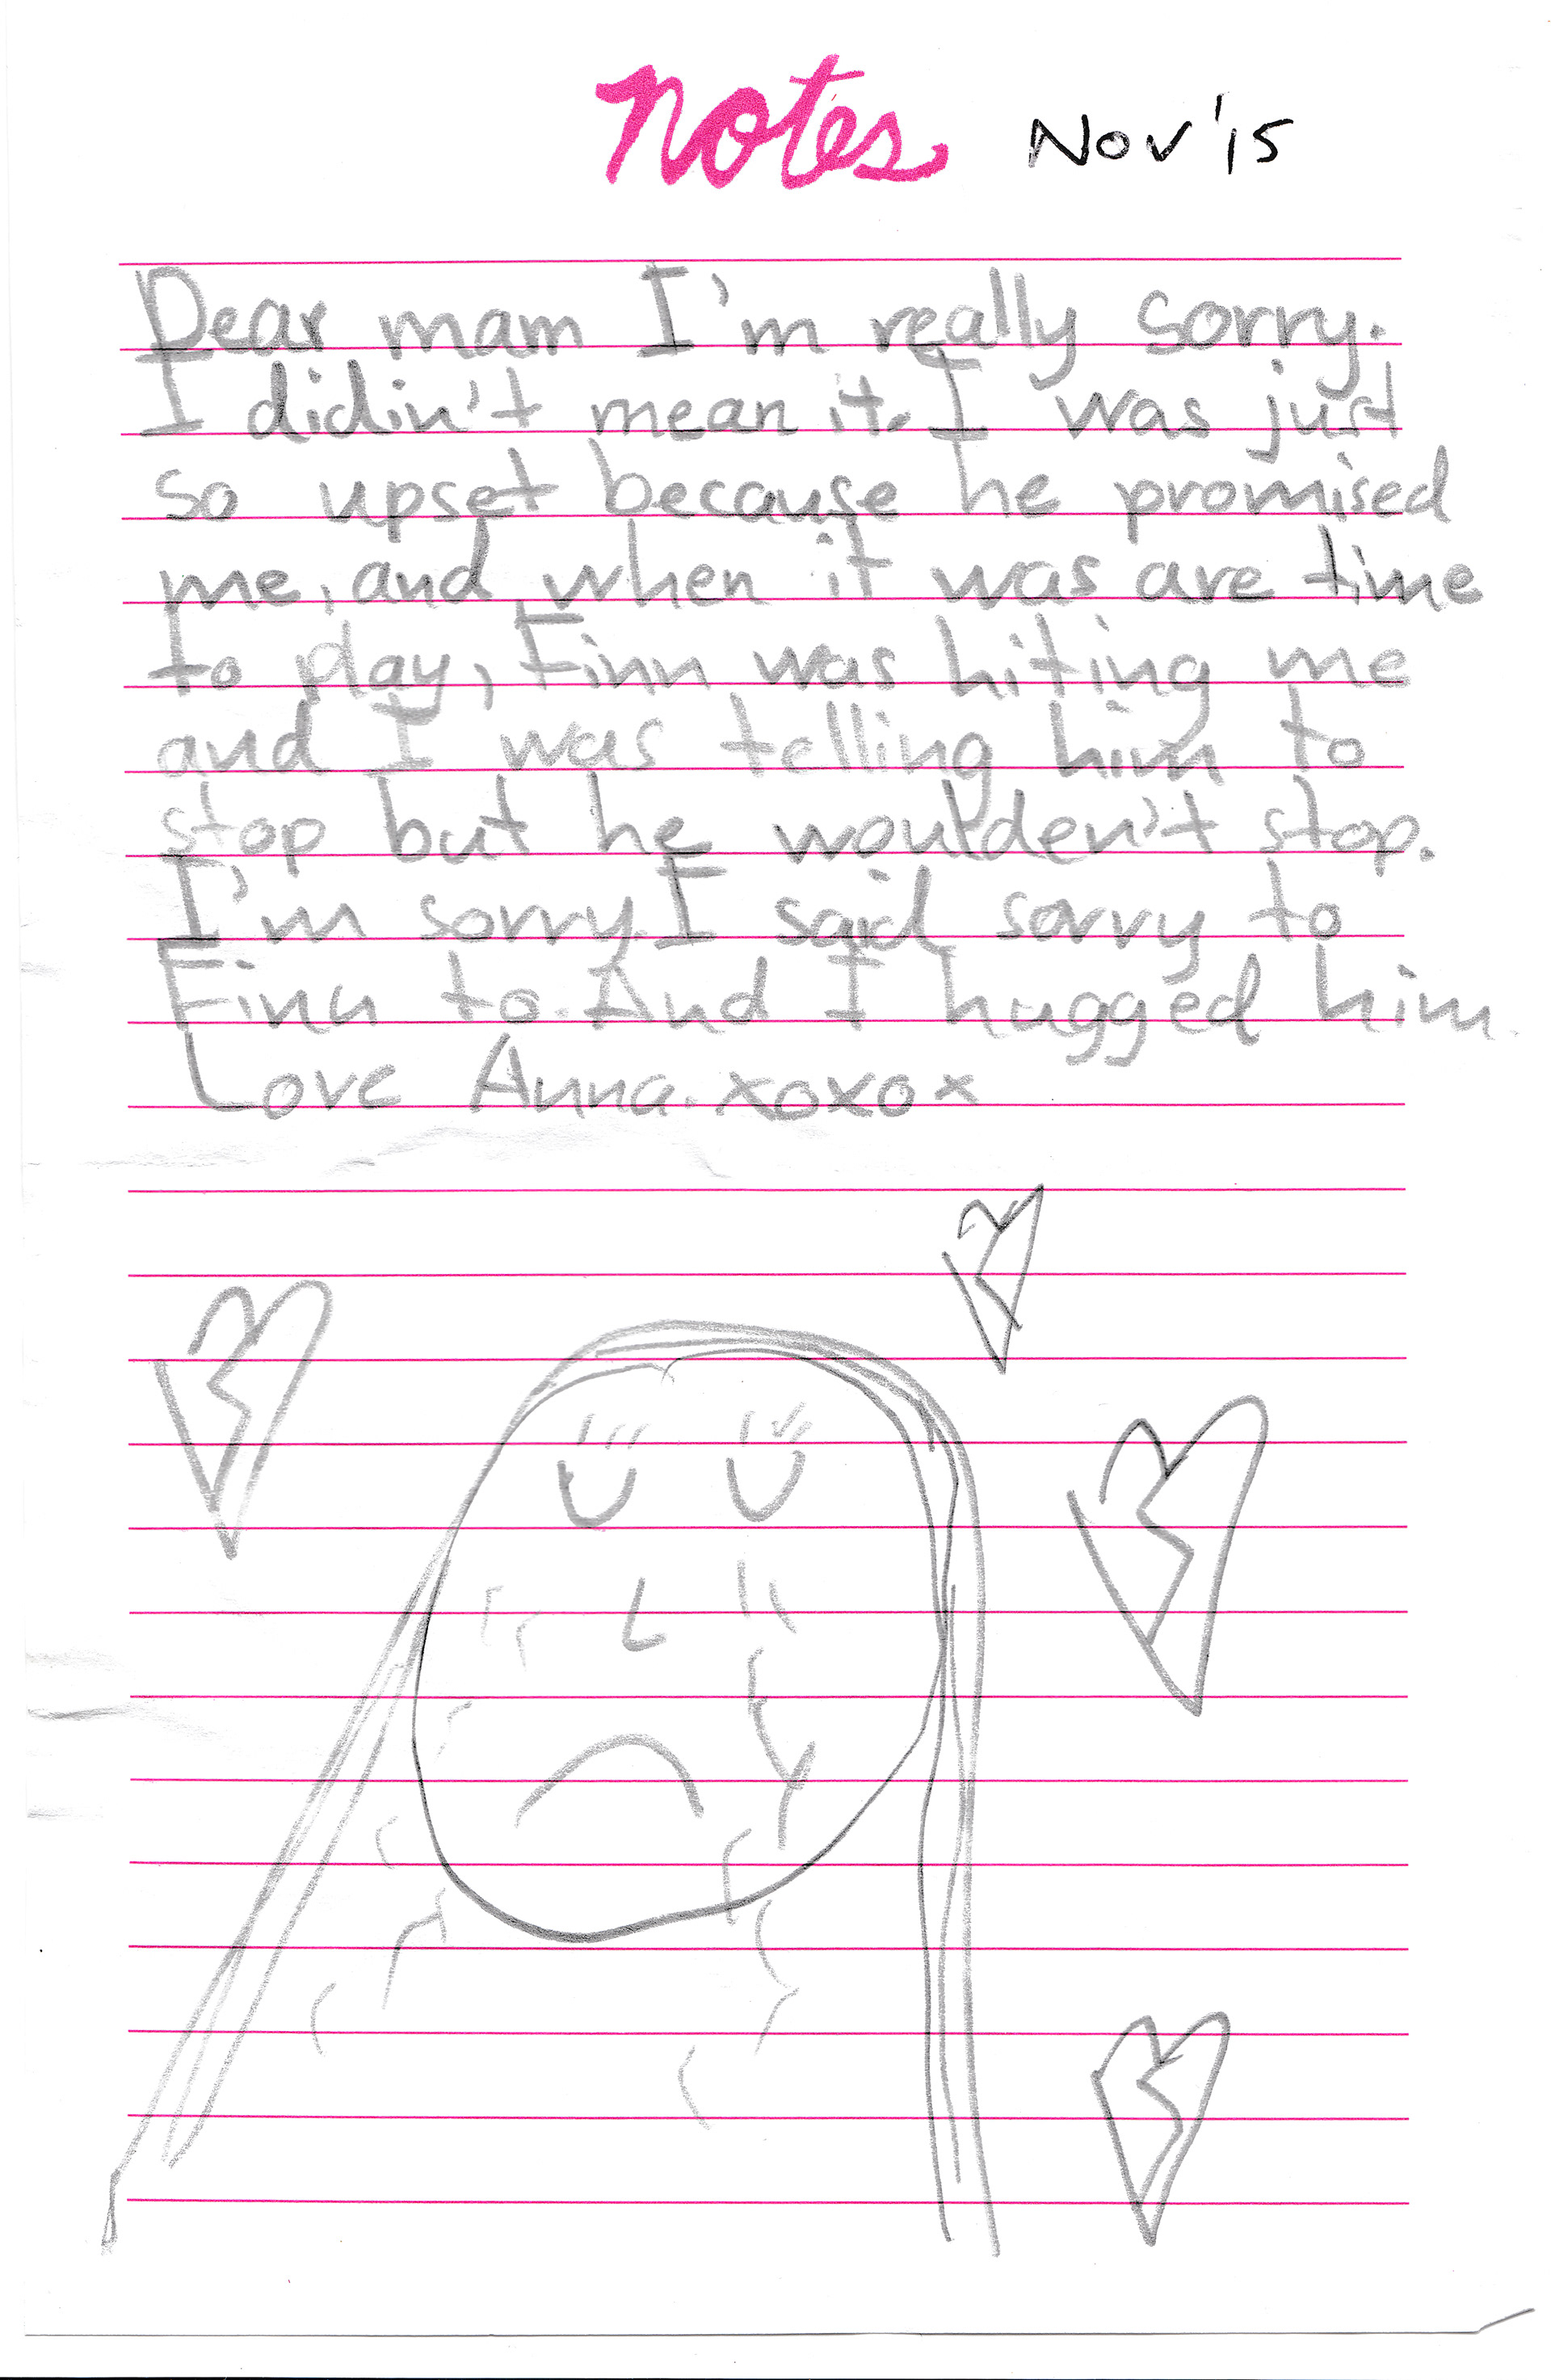 notes Nov '15
Dear mam I'm really sorry.
I didin't mean it. I was just
so upset because he promised
me, and when it was are time
to play, Finn was hiting me
and I was telling him to
stop but he wouldden't stop.
I'm sorry. I said sorry to
Finn to. And I hugged him.
Love Anna. xoxox